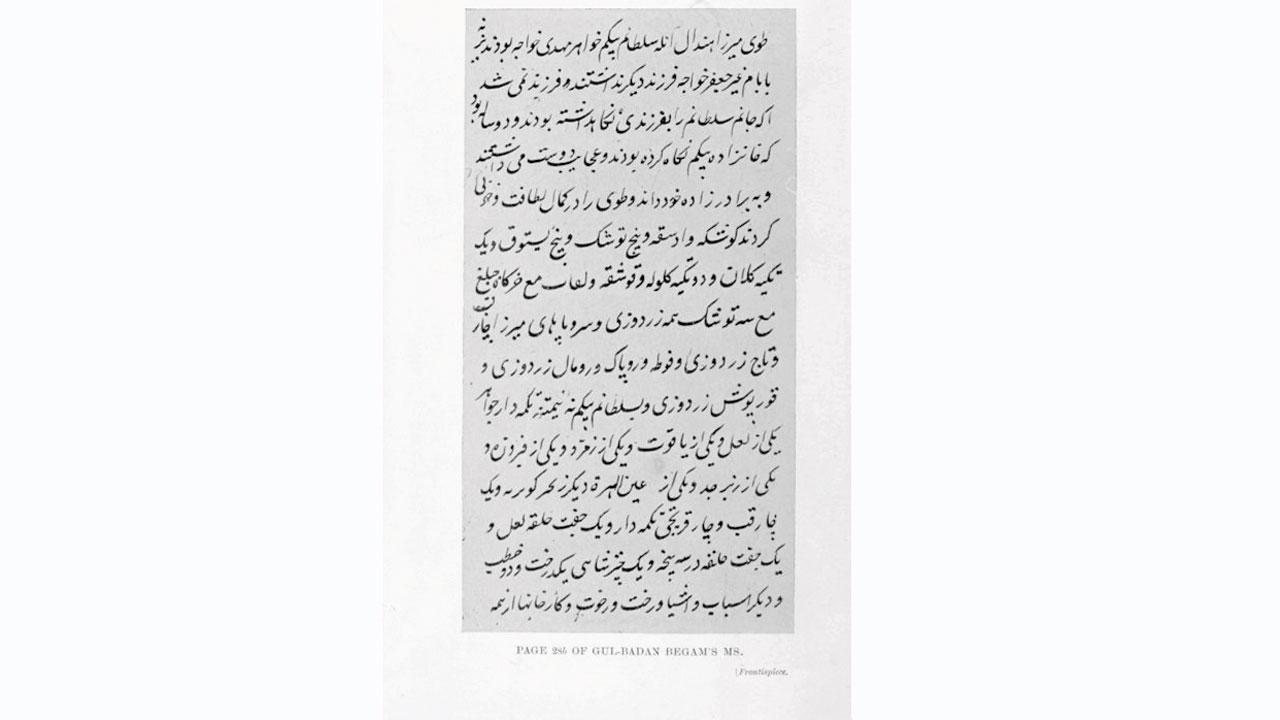 طوی میرزا هندال سلطانم بیکم خواهر مهدی خواجه بودند
بابام غیر جعفر خواجه فرزند دیکر نداشتند و فرزند نمی شد
اکه جانم سلطانم را بفرزندی نکاهداشته بودند و دوساله بود
که خانزاده بیکم نکاه کرده بودند و عجایب دوست می داشتند
و به برادرزاده خود دانند و طوی را در کمال لطافت و خوبی
کردند کوشکه و ادسقه و پنج توشک و پنج یستوق و یک
تکیه کلان و دو تکیه کلوله و قوشقه و نقاب مع خرکاه
مع سه توشک همه زردوزی و سروپاهای میرزا
و تاج زردوزی و فوطه و روپاک و رومال زردوزی و
قورپوش زردوزی و بسلطانم بیکم نه نیمتنه تکمه دار جواهر
یکی از لعل و یکی از یاقوت و یکی از زمرد و یکی از فیروزه و
یکی از زبرجد و یکی از عین الهرة دیکر
چارقب و چار قرتجی تکمه دار و یک جفت حلقه لعل و
یک جفت حلقه در و سه پنکه و یک یکدرخت و دو
و دیکر اسباب و اشیا و رخت و رخوت و کارخانها از همه
PAGE 28b OF GUL-BADAN BEGAM'S MS.
[Frontispiece.